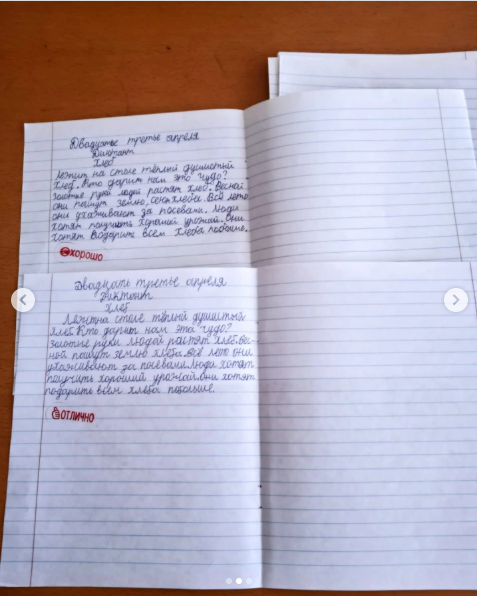 Двадцатье третье апреля
Диктант
Хлеб
Лежит на столе тёплый душистый
хлеб. Кто дарит нам это чудо?
Золотые руки людей растят хлеб. Весной
они пашут землю, сеют хлеба. Всё лето
они ухаживают за посевами. Люди
хотят получить хороший урожай. Они
хотят подарить всем хлеба побольше.
хорошо
Двадцать третье апреля
Диктант
Хлеб
Лежит на столе тёплый душистый
хлеб. Кто дарит нам эта чудо?
Золотые руки людей растят хлеб. Вес-
ной пашут землю хлеба. Всё лето они
ухаживают за посевами. Люда хотят
получить хороший урожай. Они хотят
подарить всем хлеба побольше.
отлично